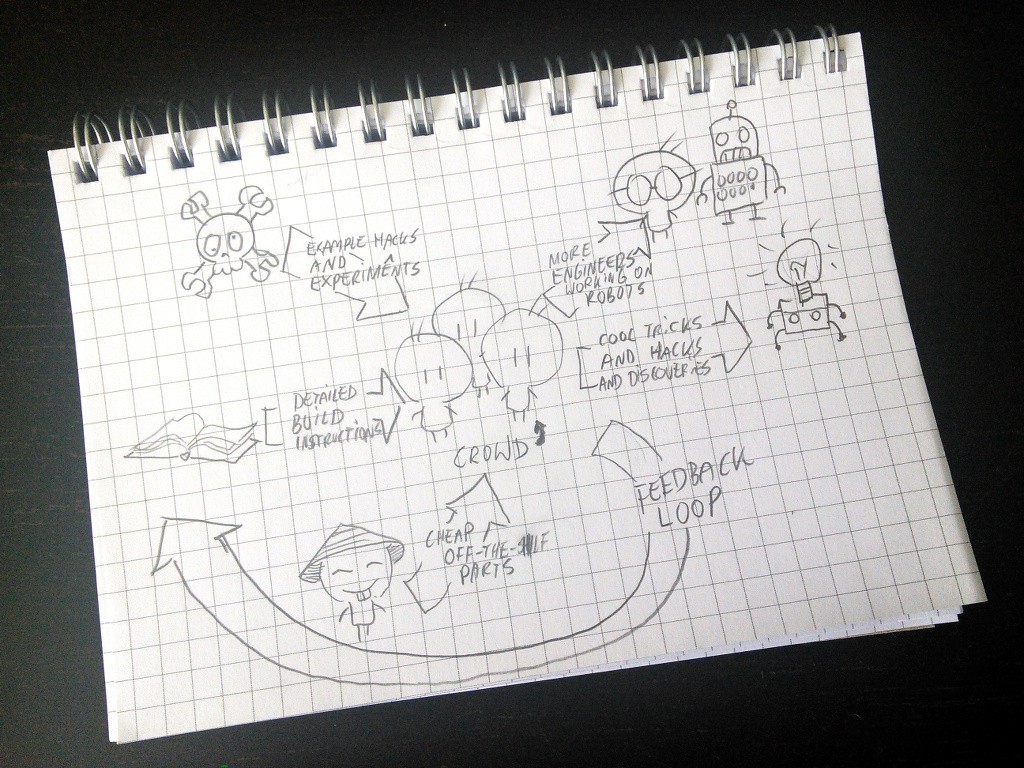 EXAMPLE HACKS
AND
EXPERIMENTS
MORE
ENGINEERS
WORKING ON
ROBOTS
COOL TRICKS
AND HACKS
AND DISCOVERIES
DETAILED
BUILD
INSTRUCTIONS
CROWD
FEEDBACK
LOOP
CHEAP
OFF-THE-SHELF
PARTS